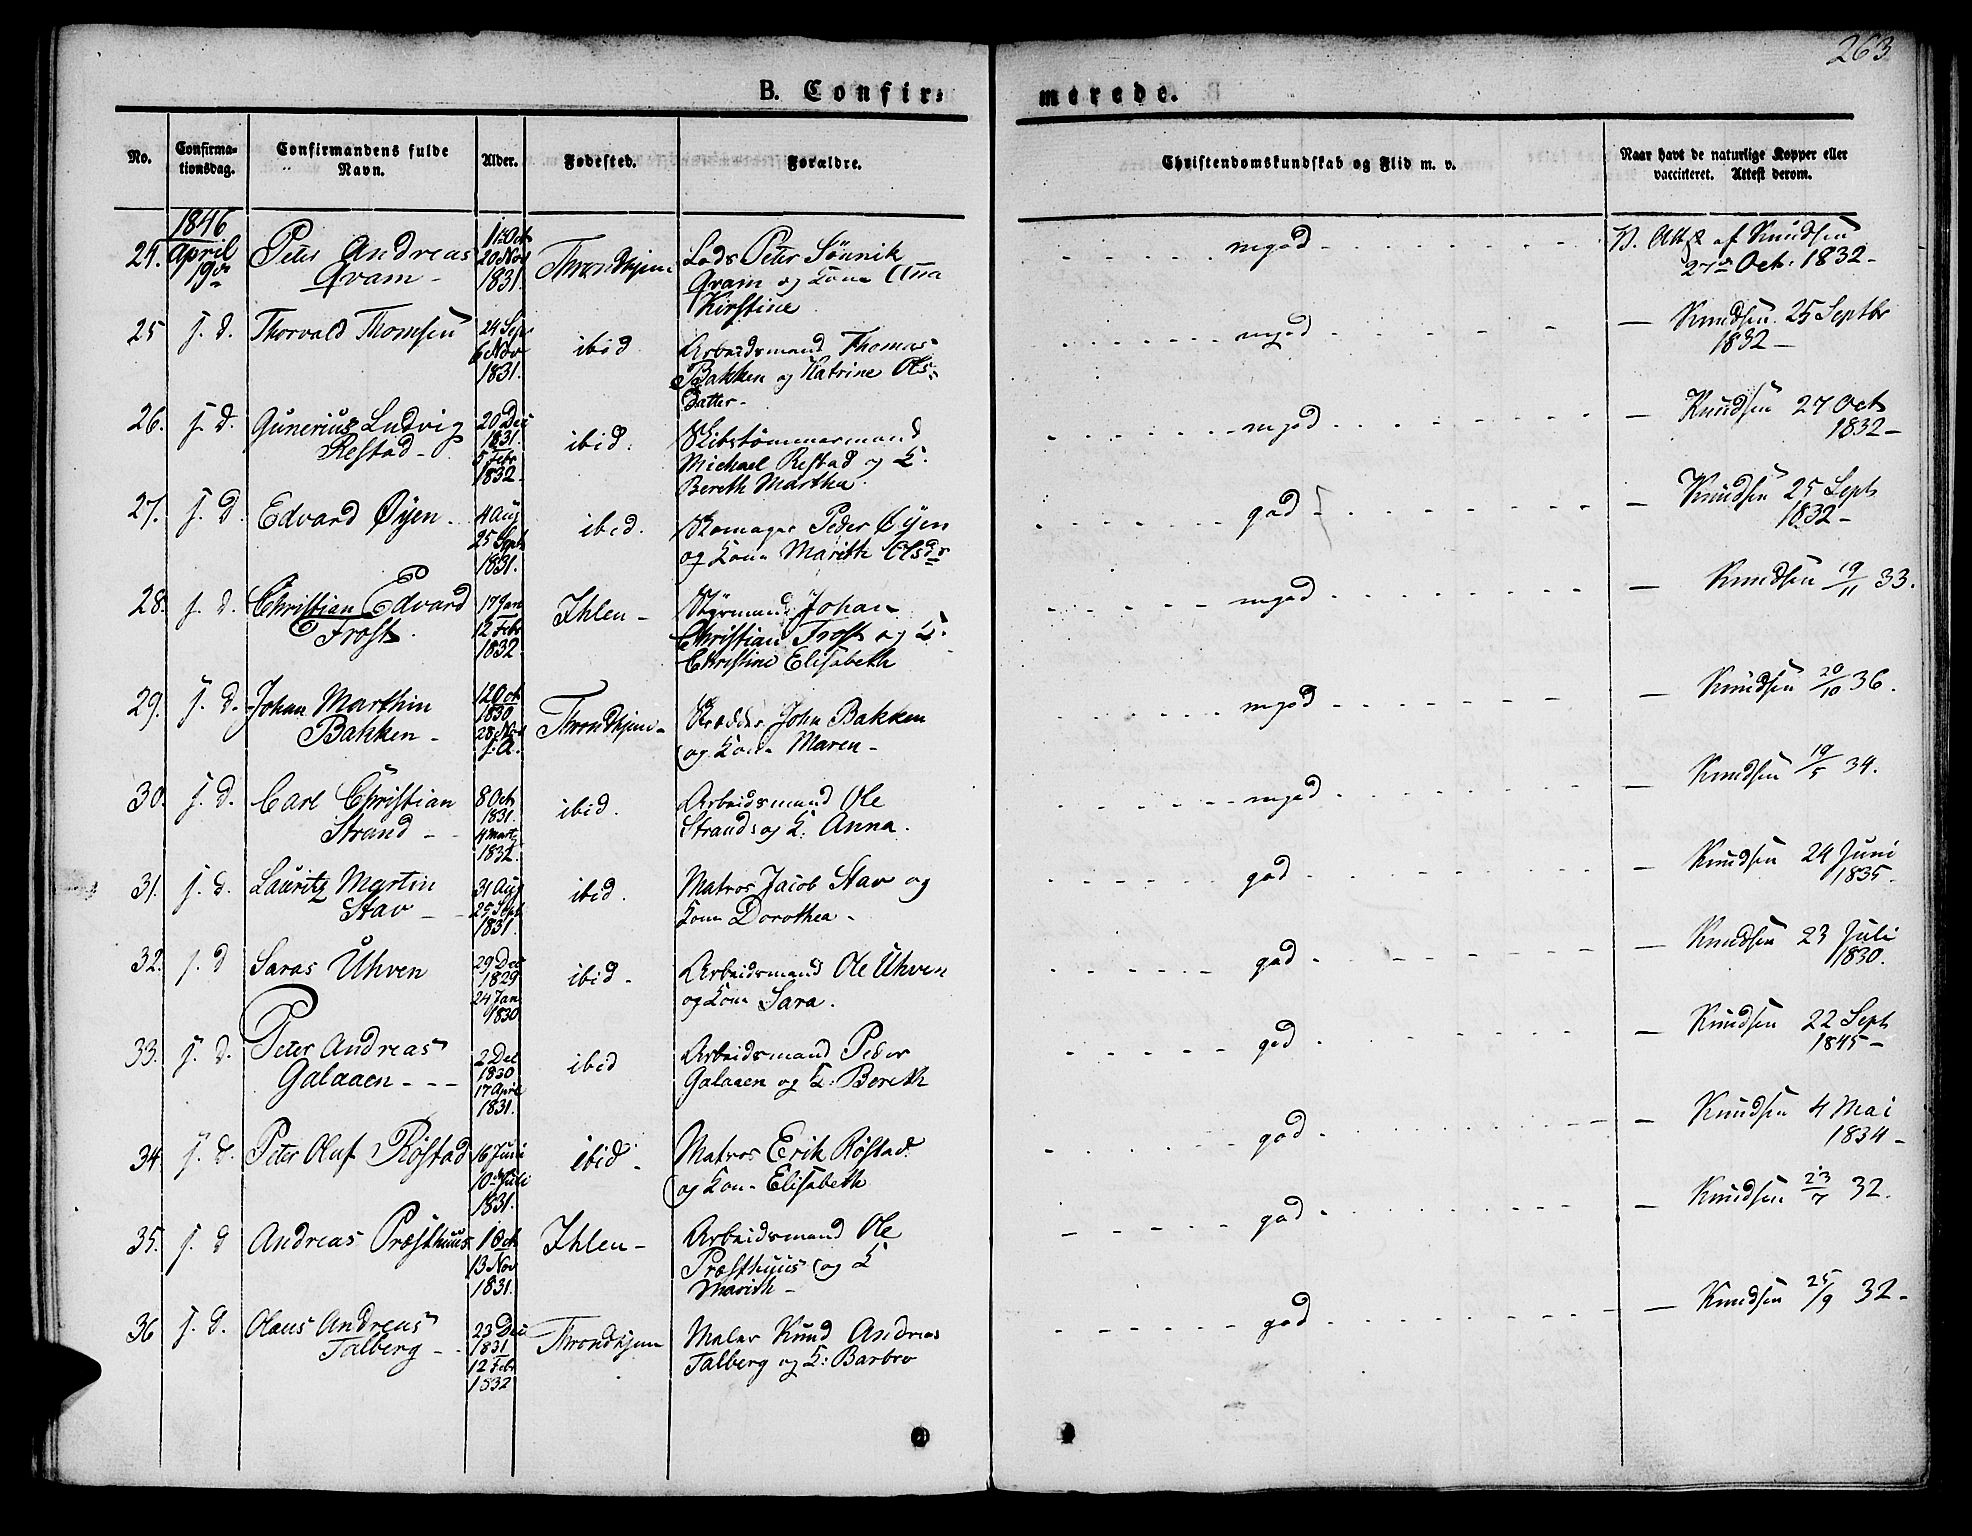 263
B. Confir=
merede.
No.
Confirma-
tionsdag.
Confirmandens fulde
Navn.
Alder.
Fødested.
Forældre.
Christendomskundskab og Flid m. v.
Naar havt de naturlige Kopper eller
vaccineret. Attest derom.
1846
April
19de
Peter Andreas
Qvam -
20 Nov
1831.
Throndhjem
Lods Peter Sönnik
Qvam og Kone Ana
Kirstine
mgod
V. Attest af Knudsen
27de Oct. 1832 -
25
s. d.
Thorvald Thomsen
24 Sept
6 Nov
1831.
ibid
Arbeidsmand Thomas
Bakken og Katrine Ols=
datter -
mgod
— Knudsen 25 Septbr
1832 -
26.
s. d.
Gunerius Ludvig
Restad -
20 Dec
1831.
5 Febr
1832.
ibid.
Skibstömmermand
Michael Restad og K.
Bereth Martha
mgod
— Knudsen 27 Oct
1832 -
27.
s. d.
Edvard Øyen
4 Aug
25 Sept
1831.
ibid.
Skomager Peder Øyen
og Kone Marith Olsdr
god
— Knudsen 25 Sept
1832 -
28.
s. d.
Christian Edvard
Frost
17 Jan
12 Febr
1832
Ihlen -
Styrmand Johan
Christian Frost og K.
Christine Elisabeth
mgod
— Knudsen 19/11 33.
29.
s. d.
Johan Marthin
Bakken -
12 Oct
1830
28 Nov
s. A.
Throndhjem -
Skrædder John Bakken
og Kone Maren -
mgod
— Knudsen 20/10 36.
30.
s. d.
Carl Christian
Strand -
8 Oct
1831.
4 Marts
1832.
ibid.
Arbeidsmand Ole
Strand og K: Anna.
mgod
— Knudsen 19/5 34.
31.
s. d.
Lauritz Martin
Stav -
31 Aug
25 Sept
1831.
ibid.
Matros Jacob Stav og
Kone Dorothea -
god
— Knudsen 24 Juni
1835 -
32.
s. d
Saras Uhven
29 Dec
1829
24 Jan
1830
ibid -
Arbeidsmand Ole Uhven
og Kone Sara.
god
— Knudsen 23 Juli
1830.
33.
s. d.
Peter Andreas
Galaaen - - -
2 Dec
1830
17 April
1831.
ibid
Arbeidsmand Peder
Galaaen og K: Bereth
god
— Knudsen 22 Sept
1845 -
34
s. d.
Peter Oluf Röstad
16 Juni
10de Juli
1831.
ibid -
Matros Erik Röstad
og Kone Elisabeth
god
— Knudsen 4 Mai
1834 -
35.
s. d
Andreas Præsthuus
1 Oct
13 Nov
1831.
Ihlen -
Arbeidsmand Ole
Præsthuus og K
Marith -
god
— Knudsen 23/7 32.
36
s. d.
Olaus Andreas
Talberg -
23 Dec
1831
12 Febr
1832
Throndhjem
Maler Knud Andreas
Talberg og K: Barbro
god
— Knudsen 25/9 32 -